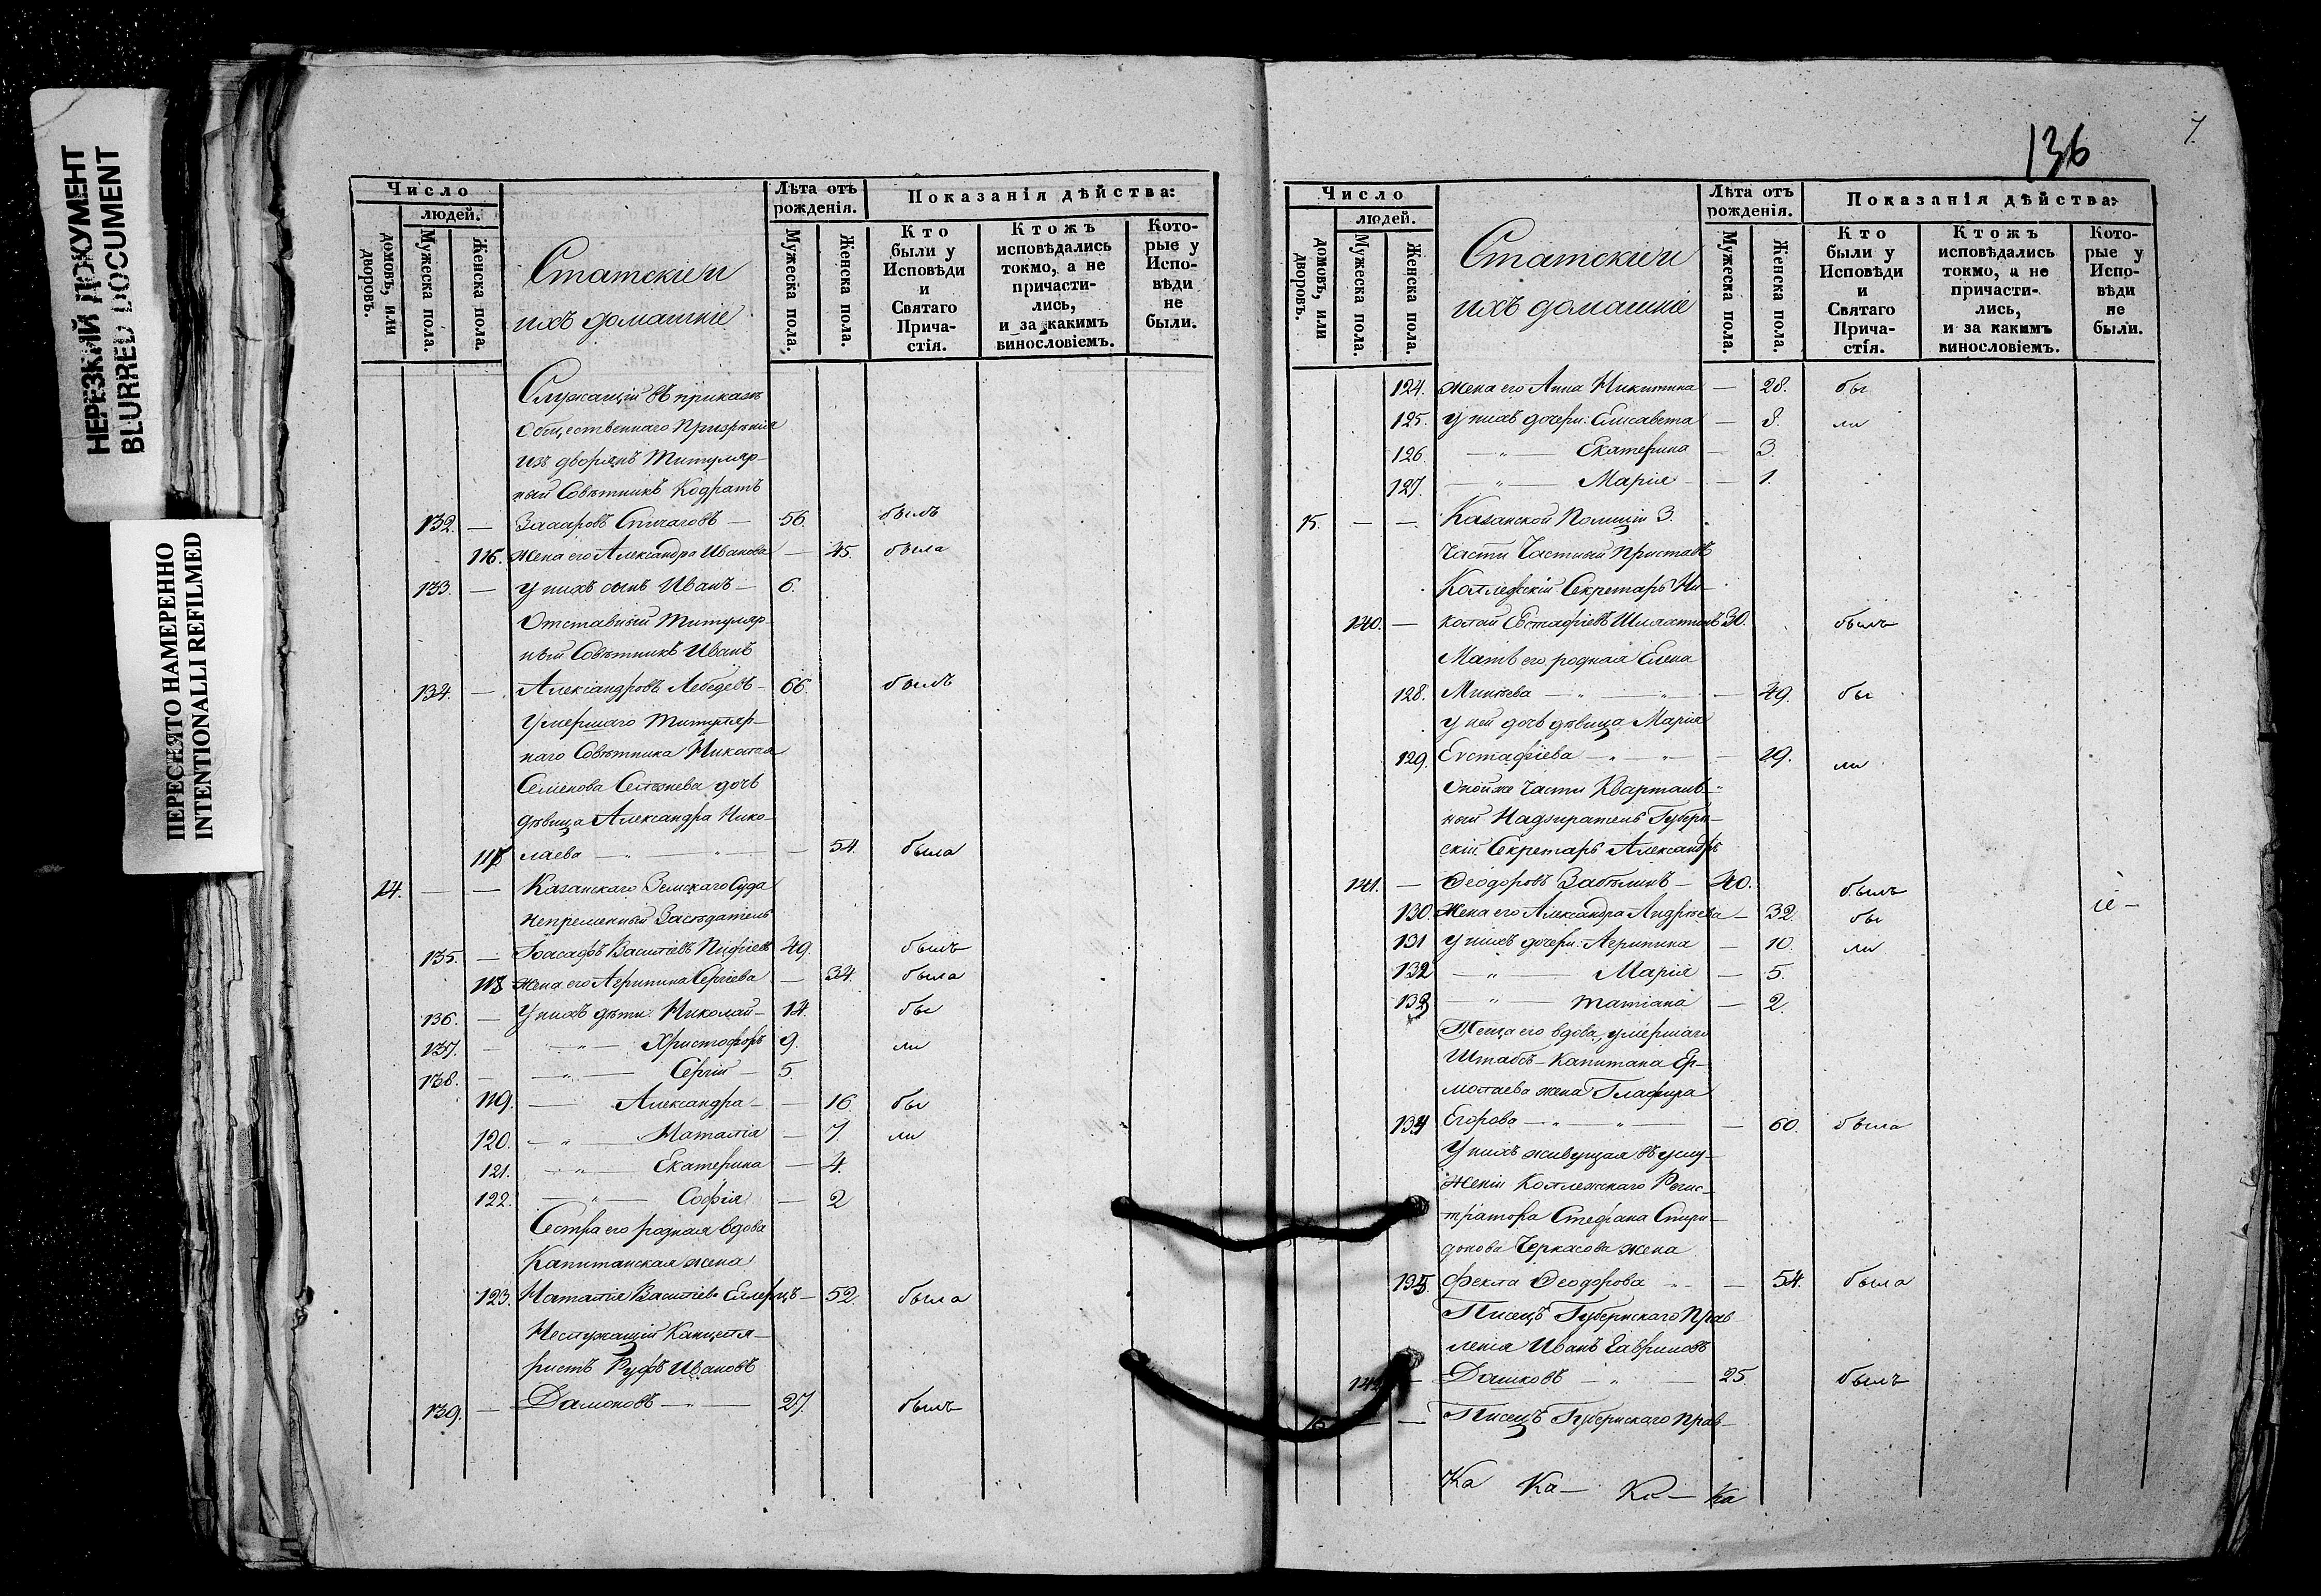 НЕРЕЗКИЙ ДОКУМЕНТ
BLURRED DOCUMENT
ПЕРЕСНЯТО НАМЕРЕННО
INTENTIONALLI REFILMED
Число
людей.
домовъ, или дворовъ.
Мужеска пола.
Женска пола.
Статскіе и
ихъ домашніе
Лѣта отъ рожденія.
Мужеска пола.
Женска пола.
Показанія дѣйства:
Кто были у Исповѣди и Святаго Прича-стія.
Ктожъ исповѣдались токмо, а не причасти-лись, и за какимъ винословіемъ.
Кото-рые у Испо-вѣди не были.
Служащій въ приказѣ
Общественнаго Призрѣнія
изъ дворянъ Титуляр-
ный Совѣтникъ Кодратъ
132. — Спичаговъ — 56. былъ
116. Жена его Александра Иванова — 45. была
133. — У нихъ сынъ Иванъ — 6.
Отставный Титуляр-
ный Совѣтникъ Иванъ
134. — Александровъ Лебедевъ — 66. былъ
Умершаго Титуляр-
наго Совѣтника Николая
Семенова дочь
дѣвица Александра Нико-
117. лаева — „ — „ — 54. была
14. — — Казанскаго Земскаго Суда
непременный Засѣдатель
135. — Іоасафъ 49. былъ
118 Жена его Агрипина Сергіева — 34. была
136. — У нихъ дѣти: Николай — 14. бы
137. — „ — Христофоръ 9. ли
138. — „ — Сергій — 5.
119. — Александра — — 16. бы
120. — „ — Наталія — 7. ли
121. — „ — Екатерина — 4.
122. — „ — Софія — 2
Сестра его родная вдова
Капитанская жена
123. Наталія — 52. была
Неслужащій Канцеля-
ристъ Руфъ Ивановъ
139. — — „ — 27. былъ
136
7.
Число
людей.
домовъ, или дворовъ.
Мужеска пола.
Женска пола.
Статскіе и
ихъ домашніе
Лѣта отъ рожденія.
Мужеска пола.
Женска пола.
Показанія дѣйства:
Кто были у Исповѣди и Святаго Прича-стія.
Ктожъ исповѣдались токмо, а не причасти-лись, и за какимъ винословіемъ.
Кото-рые у Испо-вѣди не были.
124. Жена его Анна Никитина — 28. бы
125. У нихъ дочери: Елисавета — 8. ли
126. — „ — Екатерина — 3.
127. — „ — Марія — 1.
15. — — Казанской Полиціи 3.
части Частный Приставъ
Коллежскій Секретарь Ни-
140. — колай 30. былъ
Мать его родная Елена
128. — „ — „ — 49. бы
у ней дочь дѣвица Марія
129. Евстафіева — „ — „ — 29. ли
Оной же части Кварталь-
ный Надзиратель Губерн-
скій Секретарь Александръ
141. — Ѳеодоровъ Забѣлинъ — 40. былъ
130. Жена его Александра Андрѣева — 32. бы
131 У нихъ дочери: Агрипина — 10. ли
132 — „ — Марія — 5.
133 — „ — Татіана — 2.
Теща его вдова, умершаго
Штабсъ-Капитана Ер-
молаева жена Глафира
134 Егорова — „ — „ — 60. была
У нихъ живущая въ услу-
женіи Коллежскаго Регис-
тратора Стефана Спири-
донова Черкасова жена
135. Ѳекла Ѳеодорова — 54. была
Писецъ Губернскаго Прав-
ленія Иванъ Гавриловъ
142. — Дашковъ — „ — 25. былъ
16. — — Писецъ Губернскаго Прав-
Ка Ка — Ка — Ка